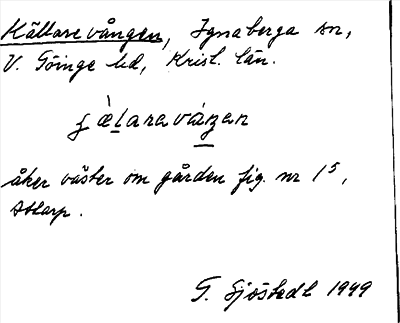 Källarevången, Ignaberga sn,
V. Göinge hd, Krist. län.
åker väster om gården fig. nr 1⁵,
Attarp.
G. Sjöstedt 1949